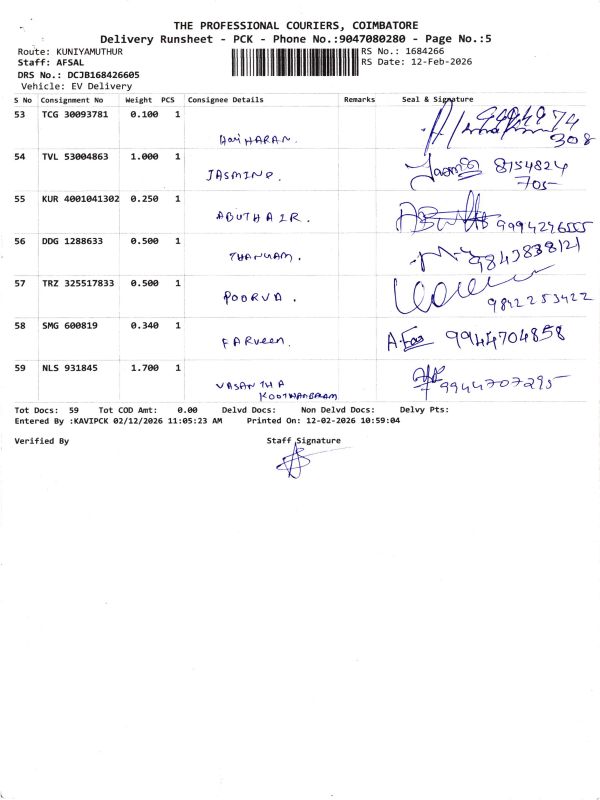 THE PROFESSIONAL COURIERS, COIMBATORE
Delivery Runsheet - PCK - Phone No.:9047080280 - Page No.:5
Route: KUNIYAMUTHUR RS No.: 1684266
Staff: AFSAL RS Date: 12-Feb-2026
DRS No.: DCJB168426605
Vehicle: EV Delivery
S No Consignment No Weight PCS Consignee Details Remarks Seal & Signature
53 TCG 30093781 0.100 1
HARIHARAN. 308
54 TVL 53004863 1.000 1
JASMINE. 8754824
705
55 KUR 4001041302 0.250 1
ABUTHAIR. 9994296555
56 DDG 1288633 0.500 1
THANGAM. 9843838121
57 TRZ 325517833 0.500 1
POORVA. 9842253422
58 SMG 600819 0.340 1
FARVEEN. 9944704858
59 NLS 931845 1.700 1
VASANTHA 9944707295
Tot Docs: 59 Tot COD Amt: 0.00 Delvd Docs: Non Delvd Docs: Delvy Pts:
Entered By :KAVIPCK 02/12/2026 11:05:23 AM Printed On: 12-02-2026 10:59:04
Verified By Staff Signature